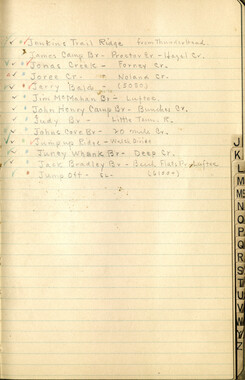 Jenkins Trail Ridge from Thunderhead.
James Camp Br - Proctor Br - Hazel Cr.
Jonas Creek - Forney Cr.
Joree Cr. - Noland Cr.
Jerry Bald - (5050)
Jim McMahan Br - Lufree.
John Henry Camp Br - Bunches Cr.
Judy Br - Little Tenn. R.
Johns Cave Br - 20 mile Br.
Jumpup Ridge - Walls Divide
Juney Whank Br - Deep Cr.
Jack Bradley Br - Lufree
Jump Off -
J
K
L
M
Mc
N
O
P
Q
R
S
T
U
V
W
Y
Z